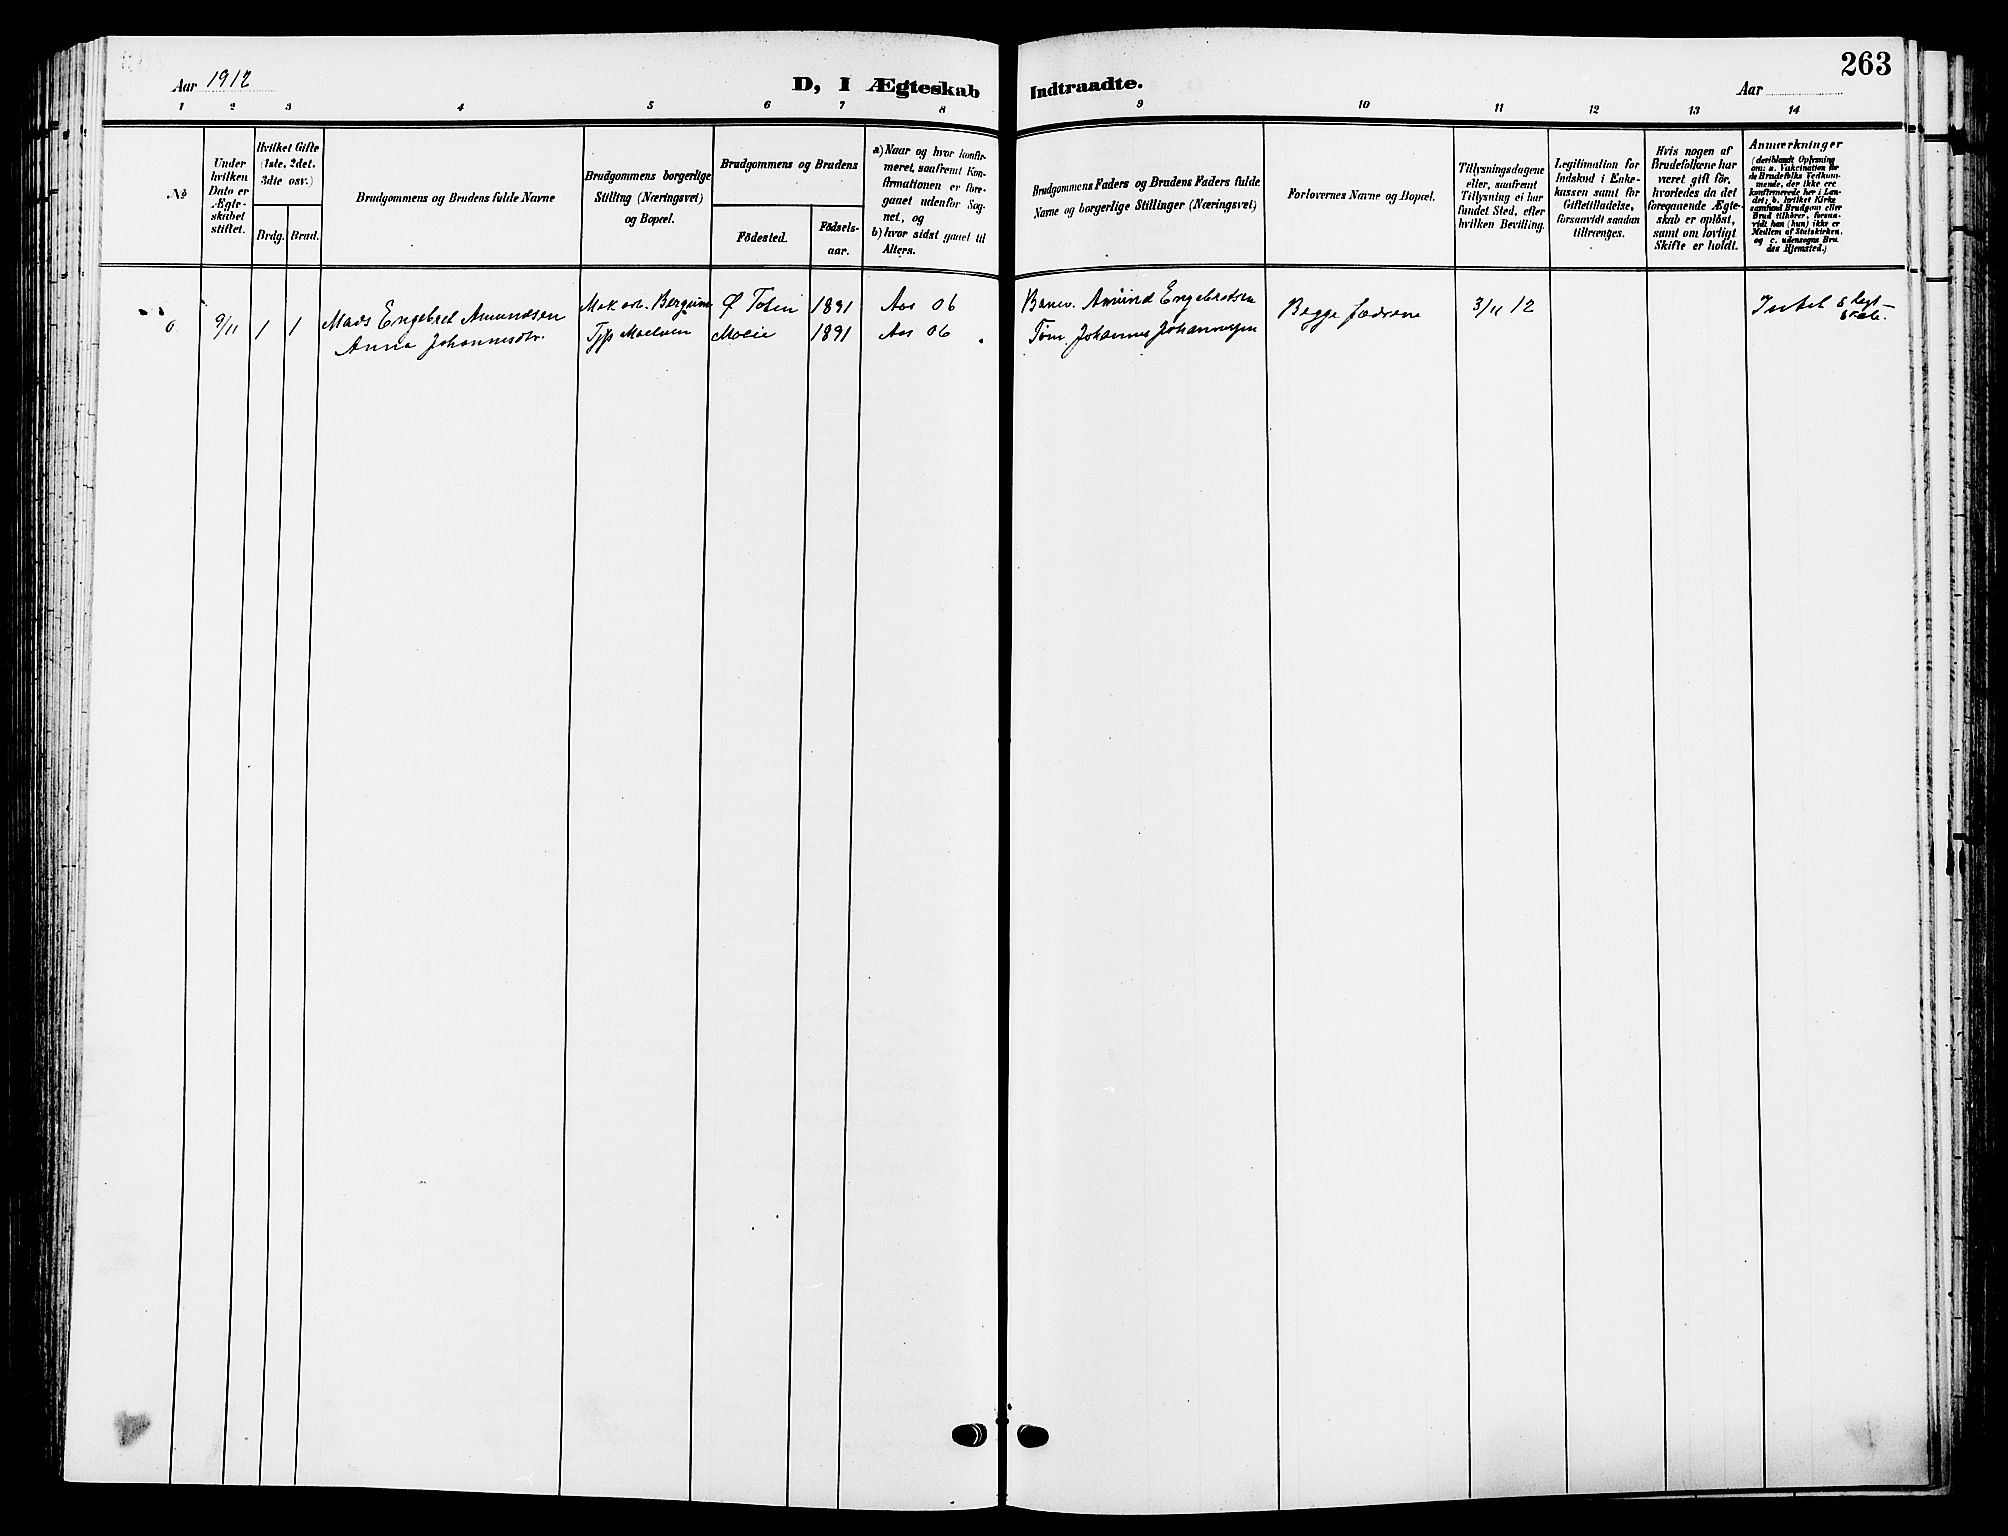 263
Aar 1912
D, I Ægteskab Indtraadte.
Aar
1 2 3 4 5 6 7 8 9 10 11 12 13 14
No
Under
hvilken
Dato er
Ægte-
skabet
stiftet.
Hvilket Gifte
(1ste, 2det,
3die osv.)
Brdg. Brud.
Brudgommens og Brudens fulde Navne
Brudgommens borgerlige
Stilling (Næringsvei)
og Bopæl.
Brudgommens og Brudens
Födested.
Födsels-
aar.
a) Naar og hvor konfir-
meret, saafremt Kon-
firmationen er fore-
gaaet udenfor Sog-
net, og
b) hvor sidst gaaet til
Alters.
Brudgommens Faders og Brudens Faders fulde
Navne og borgerlige Stillinger (Næringsvei)
Forlovernes Navne og Bopæl.
Tillysningsdagene
eller, saafremt
Tillysning ei har
fundet Sted, efter
hvilken Bevilling.
Legitimation for
Indskud i Enke-
kassen samt for
Giftetilladelse,
forsaavidt saadan
tiltrænges.
Hvis nogen af
Brudefolkene har
været gift för,
hvorledes da det
foregaaende Ægte-
skab er oplöst,
samt om lovligt
Skifte er holdt.
Anmærkninger
(deriblandt Oplysning
om: a. Vakcination for
de Brudefolks Vedkom-
mende, der ikke ere
konfirmerede her i Lan-
det; b. hvilket Kirke-
samfund Brudgom eller
Brud tilhörer, forsaa-
vidt han (hun) ikke er
Medlem af Statskirken,
og c. udensogns Bru-
des Hjemsted.)
9/11 1 1 Mads Engebret Amundsen Ø Toten 1891 Aas 06 Banev. Amund Engebretsen Begge fædrene 3/11 12 Intet
Anna Johannesdtr. 1891 Aas 06 Töm. Johannes Johannesen